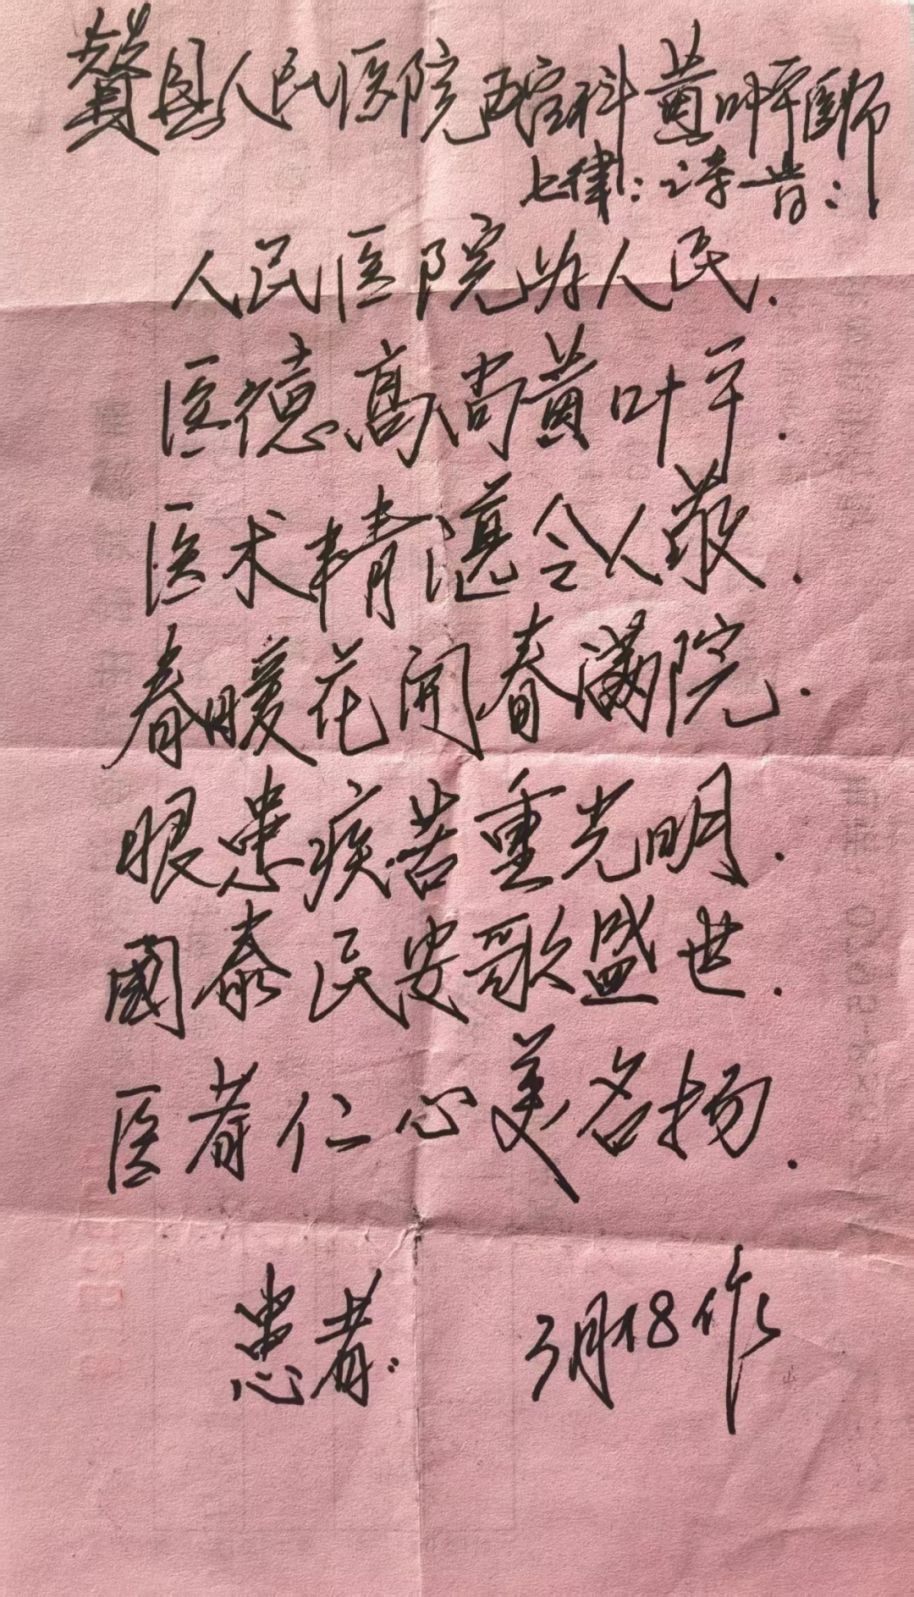 贊县人民医院五官科黄叶平医师
七律:诗一首:
人民医院为人民.
医德高尚黄叶平.
医术精湛令人敬.
春暖花開春满院.
眼患疾苦重光明.
國泰民安歌盛世.
医者仁心美名扬.
患者: 3月18作